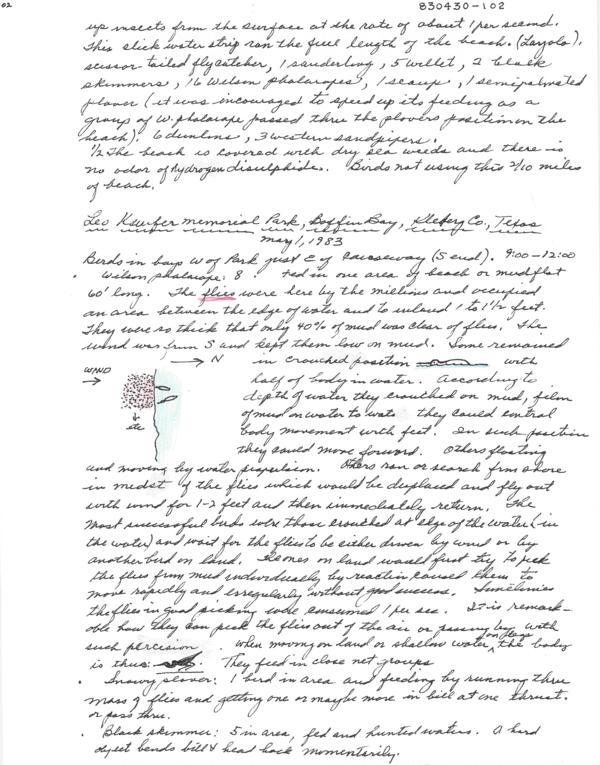 02
830430-102
up insects from the surface at the rate of about 1 per second.
This slick water strip ran the full length of the beach. (Loyola).
scissor-tailed flycatcher, 1 sanderling, 5 willet, 2 black
skimmers, 16 Wilson phalaropes, 1 scaup, 1 semipalmated
plover (it was incouraged to speed up its feeding as a
group of W. phalarope passed thru the plovers position on the
beach). 6 dunlins, 3 western sandpipers.
1/2 the beach is covered with dry sea weeds and there is
no odor of hydrogen disulphide. Birds not using this 2/10 miles
of beach.
Leo Kaufer Memorial Park, Baffin Bay, Kleberg Co., Texas
May 1, 1983
Birds in bays W of Park just E of Causeway (S end). 9:00-12:00
Wilson phalarope: 8 fed in one area of beach or mudflat
60' long. The flies were here by the millions and occupied
an area between the edge of water and to inland 1 to 1 1/2 feet.
They were so thick that only 40% of mud was clear of flies. The
wind was from S and kept them low on mud. Some remained
→ N in crouched position with
WIND → half of body in water. According to
depth of water they crouched on mud, film
of mud on water to they could control
etc body movement with feet. In such position
they could move forward. Others floating
and moving by water propulsion. Others ran or search from shore
in midst of the flies which would be displaced and fly out
with wind for 1-2 feet and then immediately return. The
most successful birds were those crouched at edge of the water (in
the water) and wait for the flies to be either driven by wind or by
another bird on land. Ones on land would first try to pick
the flies from mud individually by reaction caused them to
move rapidly and irregularly without good success. Sometimes
the flies in good picking were consumed 1 per sec. It is remark-
able how they can pick the flies out of the air or passing by with
such percision. When moving on land or shallow water, the body
is thus: They feed in close net groups
Snowy plover: 1 bird in area and feeding by running thru
mass of flies and getting one or maybe more in bill at one thrust.
or pass thru.
Black skimmer: 5 in area, fed and hunted waters. A hard
object bends bill & head back momentarily.